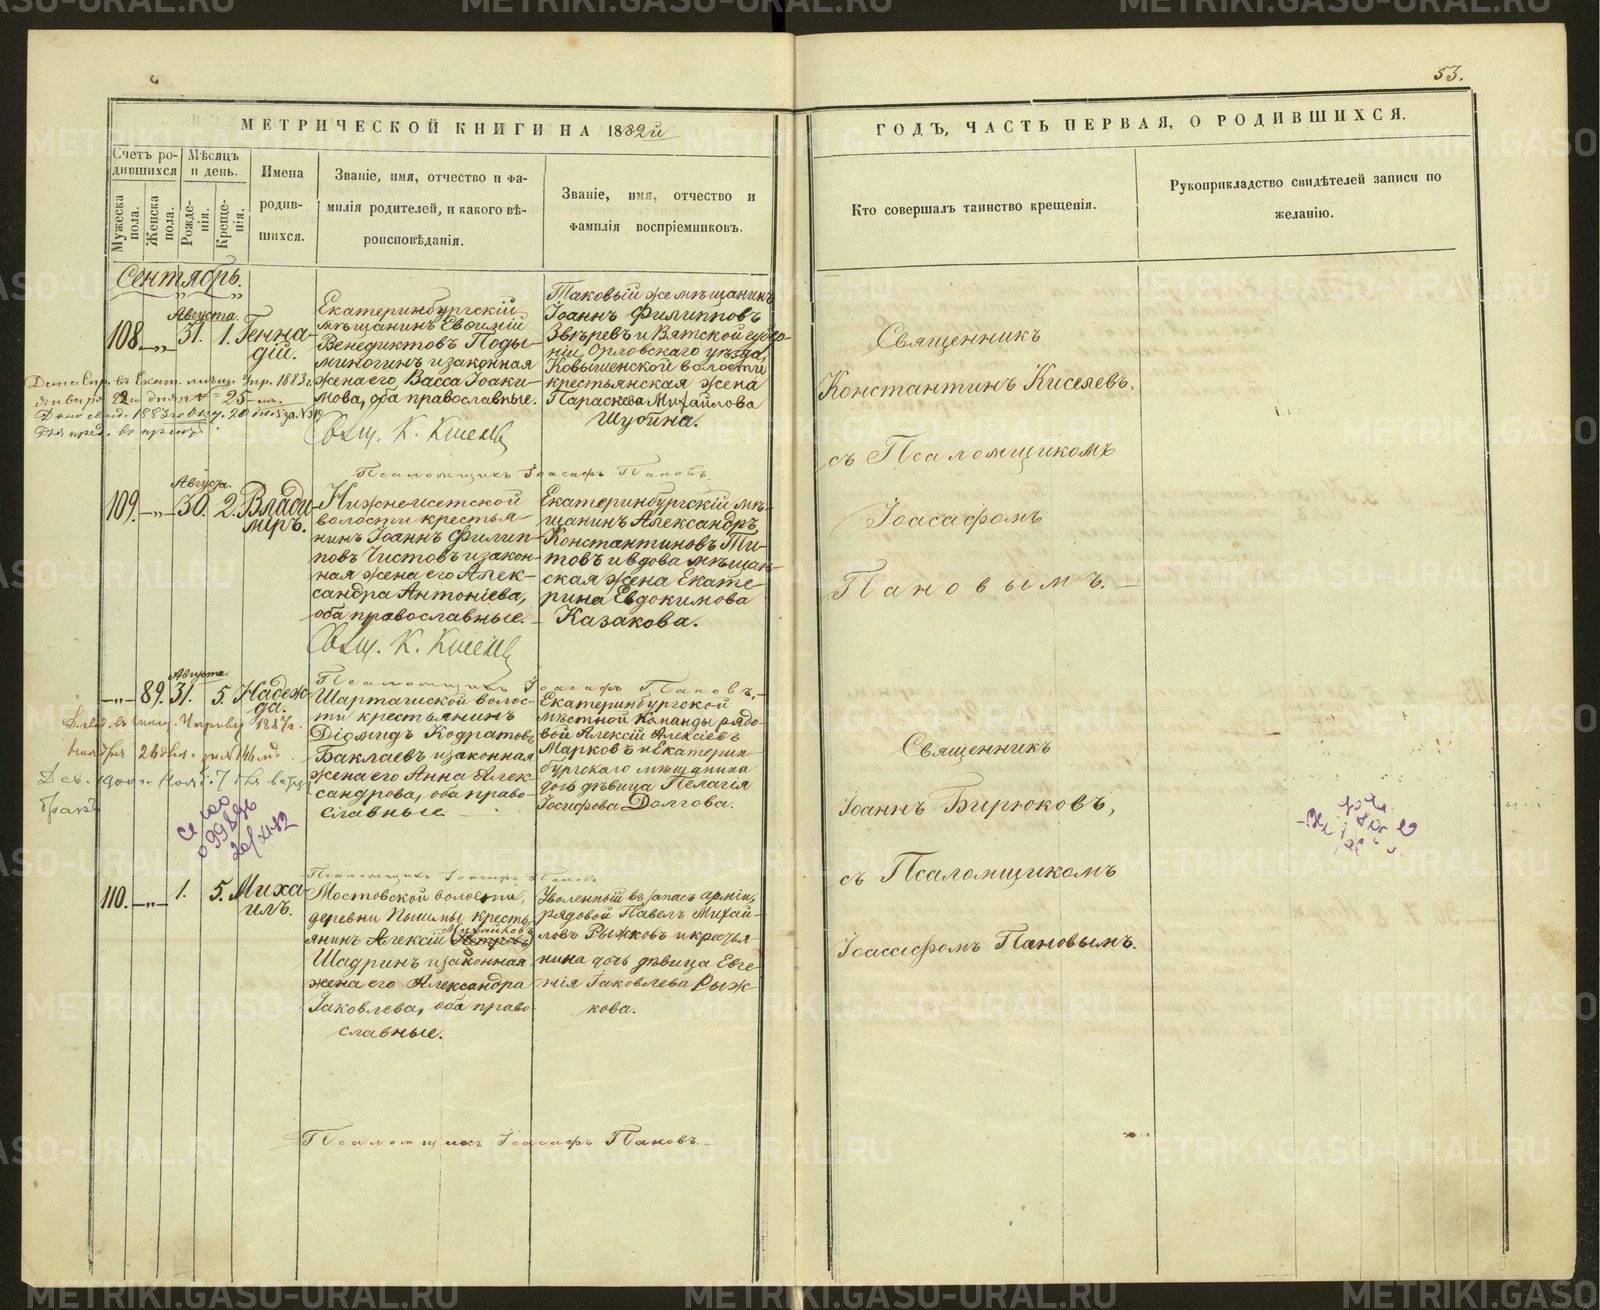 53.
МЕТРИЧЕСКОЙ КНИГИ НА 1882й
ГОДЪ, ЧАСТЬ ПЕРВАЯ, О РОДИВШИХСЯ.
Счетъ родившихся
Мужеска пола.
Женска пола.
Мѣсяцъ и день.
Рожденія.
Крещенія.
Имена родившихся.
Званіе, имя, отчество и фамилія родителей, и какого вѣроисповѣданія.
Званіе, имя, отчество и фамилія воспріемниковъ.
Кто совершалъ таинство крещенія.
Рукоприкладство свидѣтелей записи по желанію.
Сентябрь.
Августа.
108. —„— 31. 1. Геннадій.
Екатеринбургскій
мѣщанинъ Евѳимій
Венедиктовъ Поды-
миногинъ и законная
жена его Васса Іоаки-
мова, оба православные.
Таковый же мѣщанинъ
Іоаннъ Филипповъ
Звѣревъ и Вятской губер-
ніи Орловскаго уѣзда,
Ковышенской волости
крестьянская жена
Параскева Михайлова
Шубина.
Свящ. К. Киселевъ
Псаломщикъ Іоасафъ Пановъ
Священникъ
Константинъ Киселевъ,
съ Псаломщикомъ
Іоасафомъ
Пановымъ.
Августа.
109. —„— 30. 2. Владиміръ.
Нижне-исетской
волости крестья-
нинъ Іоаннъ Филип-
повъ Чистовъ и закон-
ная жена его Алек-
сандра Антоніева,
оба православные.
Екатеринбургскій мѣ-
щанинъ Александръ
Константиновъ Ти-
товъ и вдова мѣщан-
ская жена Екате-
рина Евдокимова
Казакова.
Свящ. К. Киселевъ
Псаломщикъ Іоасафъ Пановъ.
Августа.
—„— 89. 31. 5. Надежда.
Шарташской волос-
ти крестьянинъ
Діомидъ Кодратовъ
Баклаевъ и законная
жена его Анна Алек-
сандрова, оба право-
славные.
Екатеринбургской
мѣстной Команды рядо-
вой Алексій Алексіевъ
Марковъ и Екатерин-
бургскаго мѣщанина
дочь дѣвица Пелагія
Іосифова Долгова.
Псаломщикъ Іоасафъ Пановъ
Священникъ
Іоаннъ Бирюковъ,
съ Псаломщикомъ
Іоасафомъ Пановымъ.
110. —„— 1. 5. Михаилъ.
Мостовской волости,
деревни Пышмы, кресть-
янинъ Алексій (Петровъ) Михайловъ
Шадринъ и законная
жена его Александра
Іаковлева, оба право-
славные.
Уволенный въ запасъ арміи,
рядовой Павелъ Михай-
ловъ Рыжковъ и крестья-
нина дочь дѣвица Евге-
нія Іаковлева Рыж-
кова.
Псаломщикъ Іоасафъ Пановъ.
METRIKI.GASO-URAL.RU